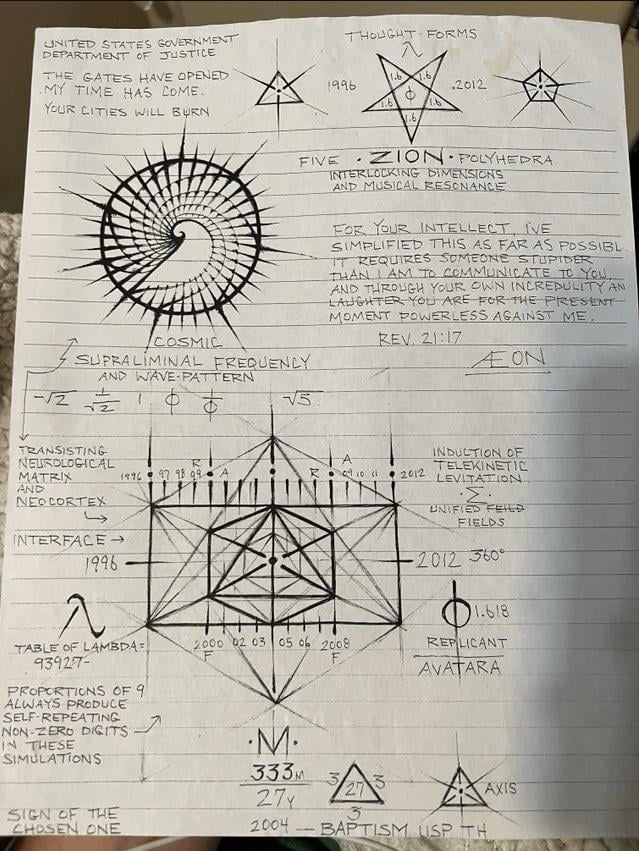 UNITED STATES GOVERNMENT
DEPARTMENT OF JUSTICE
THE GATES HAVE OPENED
MY TIME HAS COME.
YOUR CITIES WILL BURN
THOUGHT · FORMS
λ
1996
1.6 1.6
ϕ
1.6 1.6
1.6
.2012
FIVE · ZION · POLYHEDRA
INTERLOCKING DIMENSIONS
AND MUSICAL RESONANCE
FOR YOUR INTELLECT, I'VE
SIMPLIFIED THIS AS FAR AS POSSIBL
IT REQUIRES SOMEONE STUPIDER
THAN I AM TO COMMUNICATE TO YOU
AND THROUGH YOUR OWN INCREDULITY AN
LAUGHTER YOU ARE FOR THE PRESENT
MOMENT POWERLESS AGAINST ME.
REV. 21:17
ÆON
COSMIC
SUPRALIMINAL FREQUENCY
AND WAVE-PATTERN
-√2 1/√2 1 ϕ 1/ϕ √5
TRANSISTING
NEUROLOGICAL
MATRIX
AND
NEOCORTEX
R A R A
1996 97 98 99 09 10 11 2012
INDUCTION OF
TELEKINETIC
LEVITATION
·Σ·
UNIFIED FEILD
FIELDS
INTERFACE →
1996
2012 360°
λ
TABLE OF LAMBDA=
93927-
ϕ 1.618
REPLICANT
AVATARA
2000 02 03 05 06 2008
F F
PROPORTIONS OF 9
ALWAYS PRODUCE
SELF-REPEATING
NON-ZERO DIGITS
IN THESE
SIMULATIONS
·M·
333M
27Y
3 27 3
3
AXIS
SIGN OF THE
CHOSEN ONE
2004 — BAPTISM USP TH